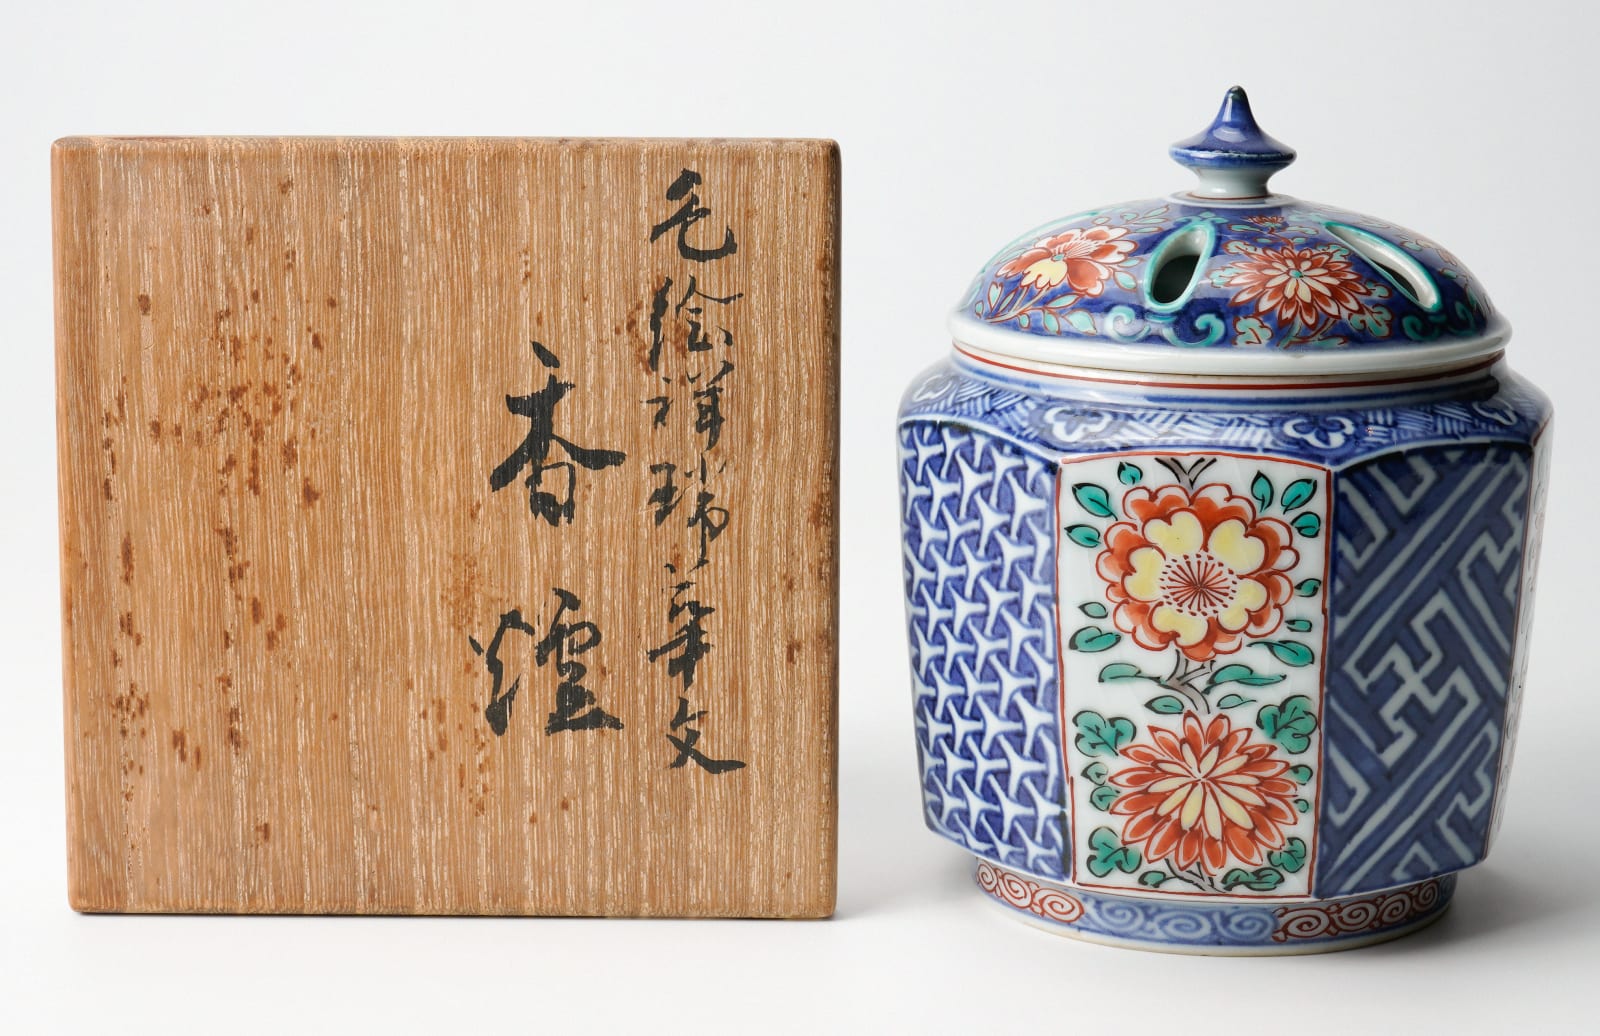 色絵祥瑞華文
香爐